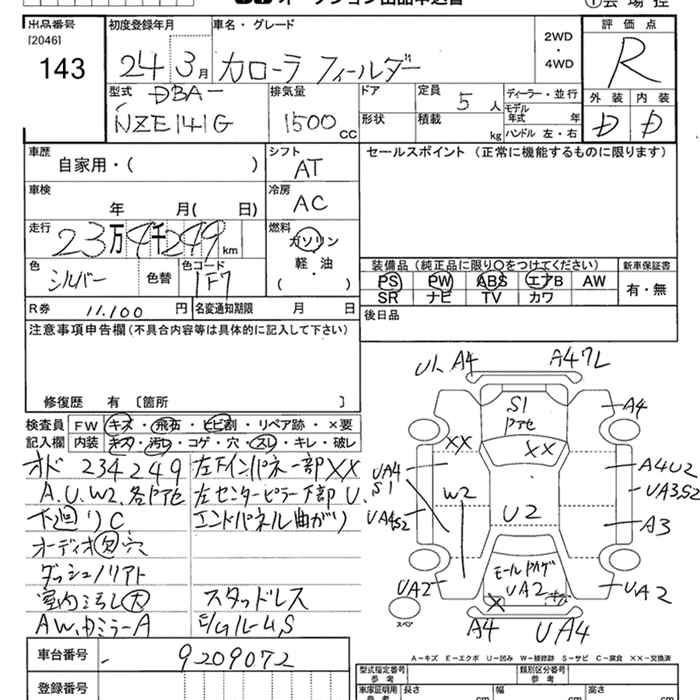 出品番号 初度登録年月 車名・グレード 評価点
[2046]
143
24年 3月 カローラ フィールダー
2WD・4WD
R
型式 排気量 ドア 定員 ディーラー・並行 外装 内装
DBA-
NZE141G 1500cc
5人
形状 積載 kg
モデル年式 年
ハンドル 左・右
D D
車歴 シフト セールスポイント (正常に機能するものに限ります)
自家用・( ) AT
車検 冷房
年 月( 日) AC
走行 燃料
23万4千249km ガソリン
軽・油
( )
色 色替 色コード
シルバー 1F7
装備品 (純正品に限り○をつけてください) 新車保証書
PS PW ABS エアB AW 有・無
SR ナビ TV カワ
R券 11,100円 名変通知期限 月 日
後日品
注意事項申告欄(不具合内容等は具体的に記入して下さい)
修復歴 有 [箇所 ]
検査員記入欄 FW キズ・飛石・ヒビ割・リペア跡・×要
内装 キズ・汚レ・コゲ・穴・スレ・キレ・破レ
オド 234249 左Fインパネ一部XX
A.U.W2.各Pアセ 左センターピラー下部U.
下廻りC エンドパネル曲がり
オーディオ欠穴
ダッシュノリアト
室内汚レ大 スタッドレス
AW.ドミラーA
車台番号 - 9209072
登録番号
U1 A4 A47L
S1 Pアセ A4
XX XX
UA4 S1 A4U2
W2 UA3S2
UA4S2 U2 A3
モールハガゲ
UA2 UA2 UA2
X
A4 UA4
スペア
A-キズ E-エクボ U-凹み W-補修跡 S-サビ C-腐食 XX-交換済
型式指定番号 類別区分番号
参考 参考
車庫証明用 長さ cm 幅 cm 高さ cm